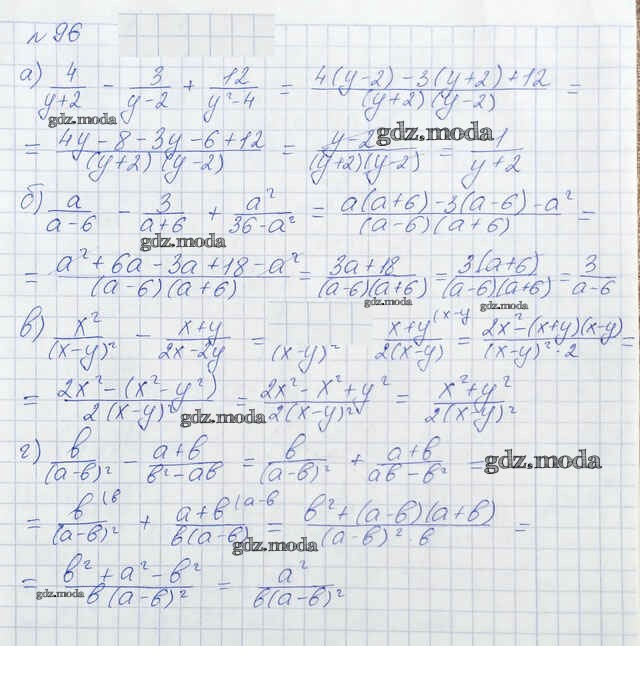 № 96
а) 4/(y+2) - 3/(y-2) + 12/(y²-4) = (4(y-2)-3(y+2)+12)/((y+2)(y-2)) =
gdz.moda
gdz.moda
= (4y-8-3y-6+12)/((y+2)(y-2)) = (y-2)/((y+2)(y-2)) = 1/(y+2)
б) a/(a-6) - 3/(a+6) + a²/(36-a²) = (a(a+6)-3(a-6)-a²)/((a-6)(a+6)) =
gdz.moda
= (a²+6a-3a+18-a²)/((a-6)(a+6)) = (3a+18)/((a-6)(a+6)) = (3(a+6))/((a-6)(a+6)) = 3/(a-6)
gdz.moda gdz.moda
в) x²/(x-y)² - (x+y)/(2x-2y) = /(x-y)² (x+y)/(2(x-y)) (x-y = (2x²-(x+y)(x-y))/((x-y)²·2) =
= (2x²-(x²-y²))/(2(x-y)²) = (2x²-x²+y²)/(2(x-y)²) = (x²+y²)/(2(x-y)²)
gdz.moda
г) b/(a-b)² - (a+b)/(b²-ab) = b/(a-b)² + (a+b)/(ab-b²) =
gdz.moda
= b/(a-b)² (b + (a+b)/(b(a-b)) (a-b = (b²+(a-b)(a+b))/((a-b)²·b) =
gdz.moda
= (b²+a²-b²)/(b(a-b)²) = a²/(b(a-b)²)
gdz.moda